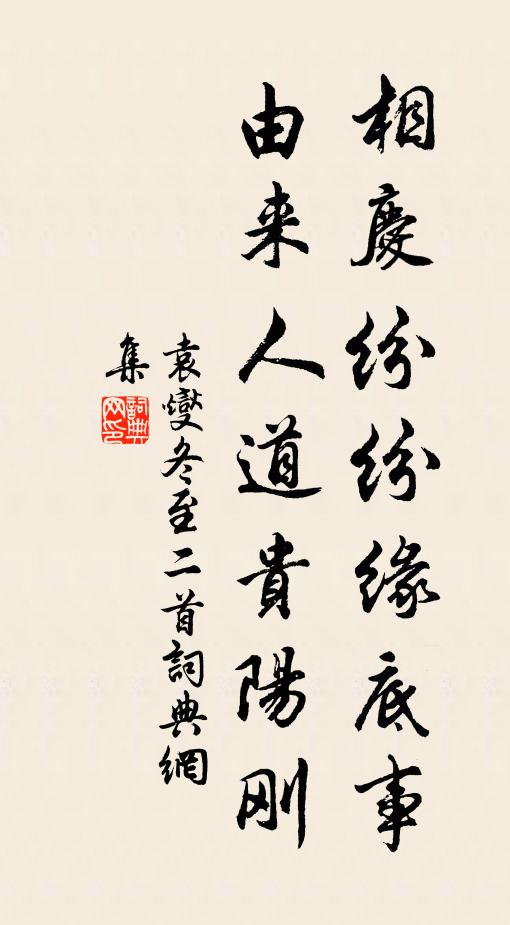 相慶紛紛緣底事
由来人道貴陽刚
袁燮冬至二首詞典網
集
詞典网印